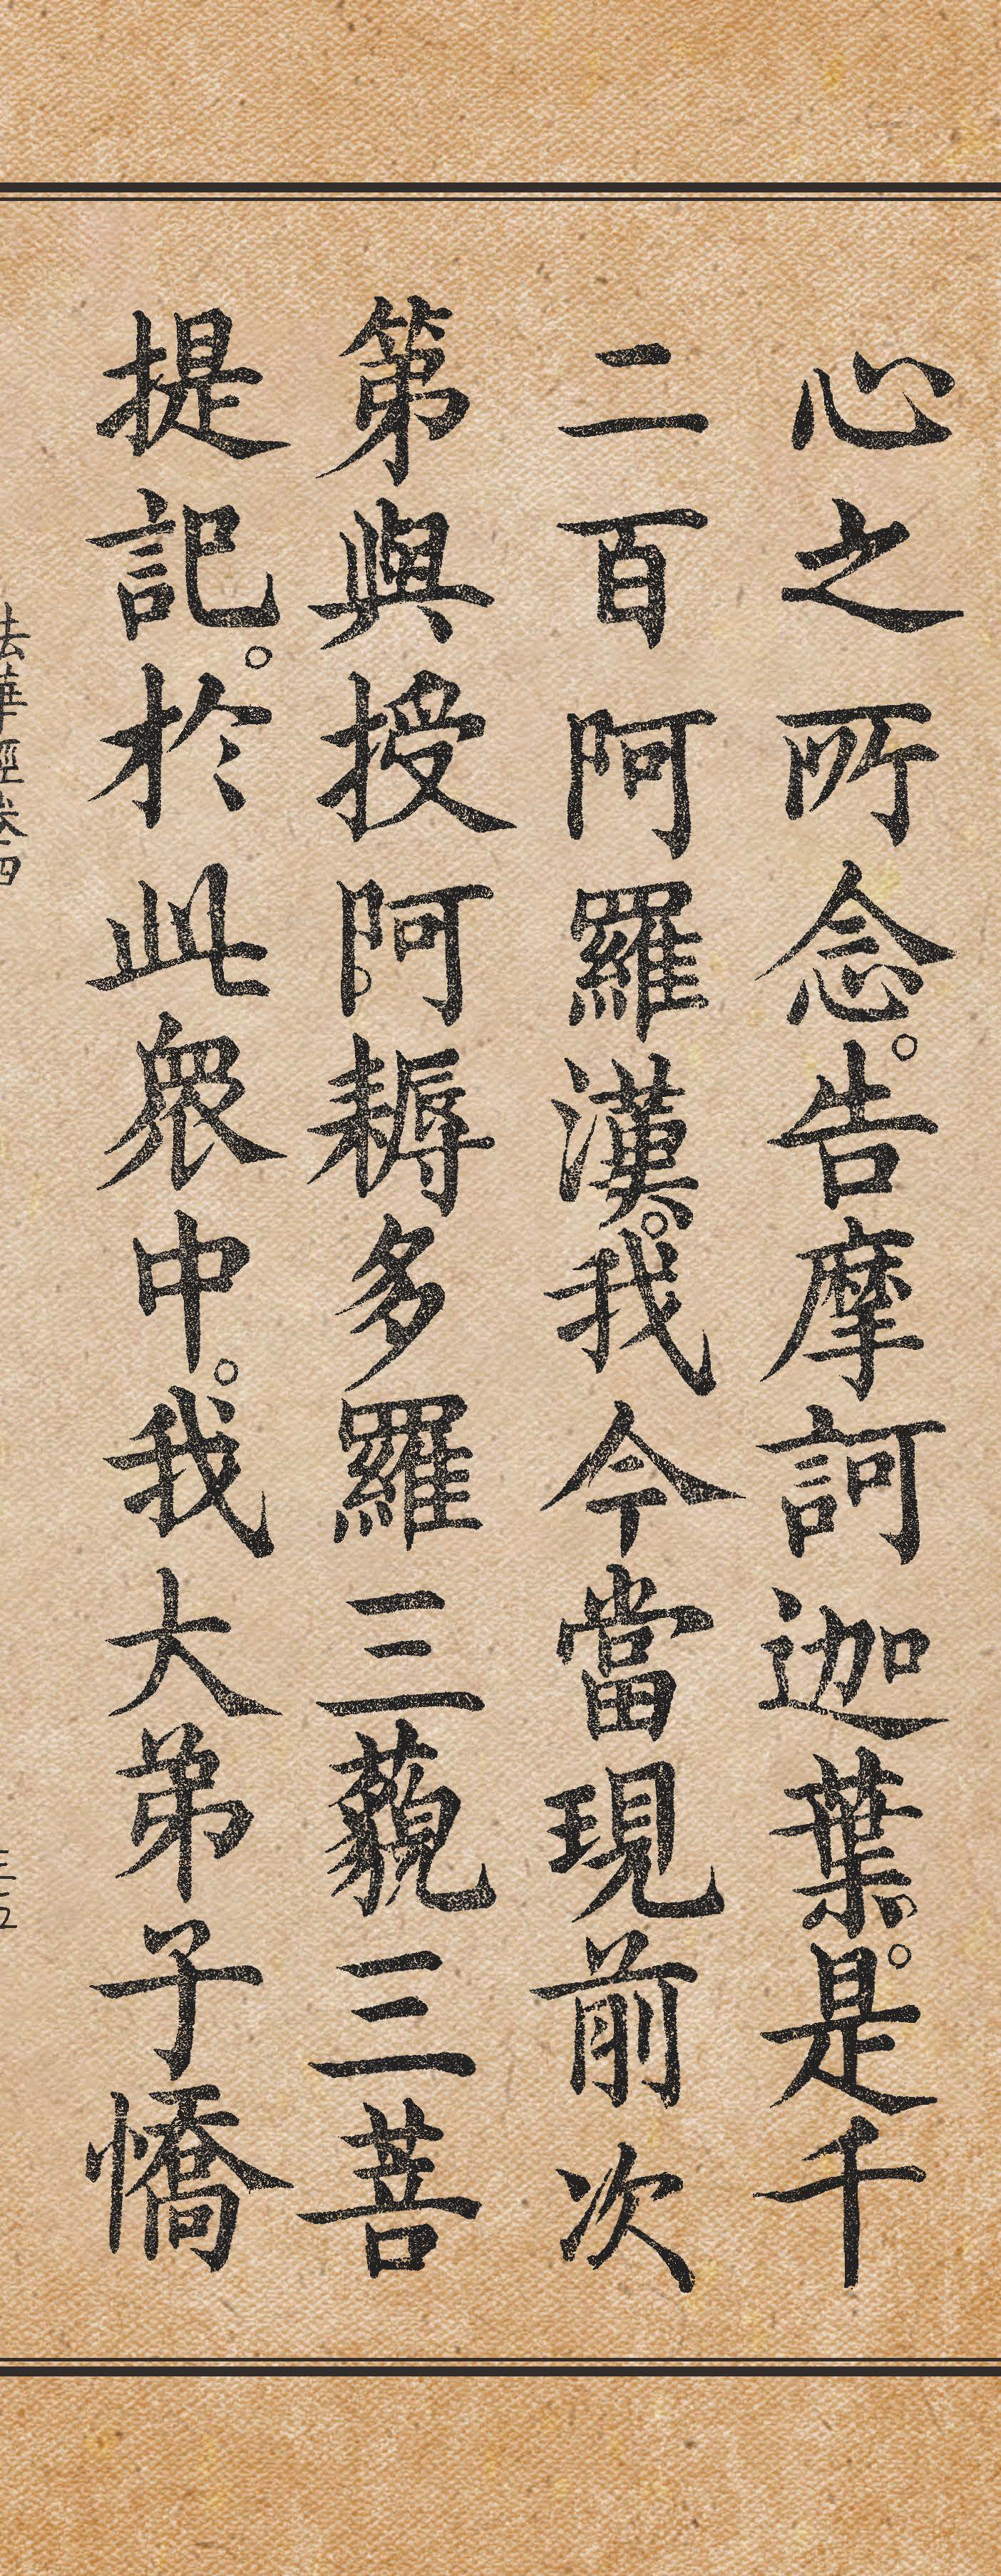 心之所念。告摩訶迦葉。是千
二百阿羅漢。我今當現前次
第與授阿耨多羅三藐三菩
提記。於此眾中。我大弟子憍
法華經卷四
三五